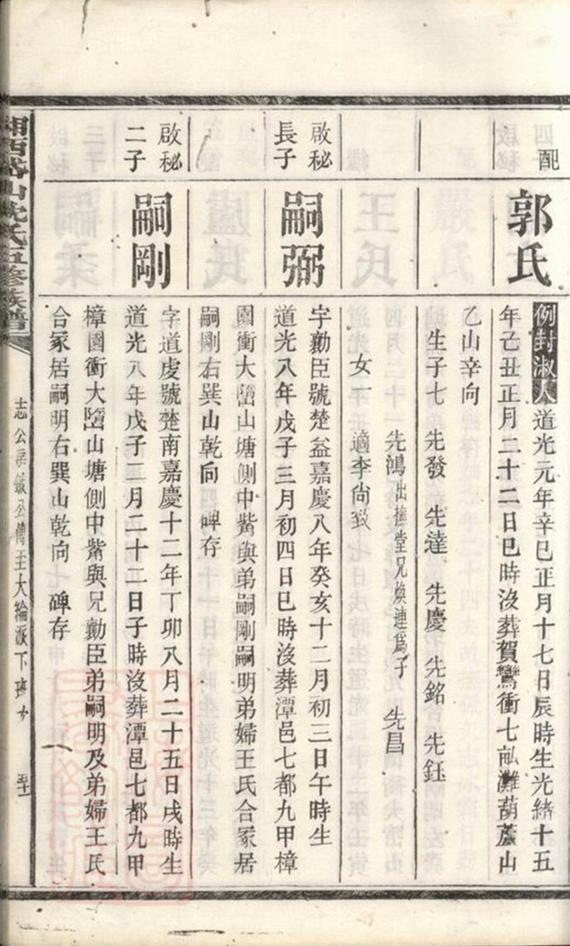 配
郭氏
例封淑人道光元年辛巳正月十七日辰時生光緒十五
年己丑正月二十二日巳時沒葬賀鸞衝七畝灘葫蘆山
乙山辛向
生子七 先發 先達 先慶 先銘 先鈺
先鴻出撫堂兄煥連爲子 先昌
女一 適李尙致
啟秘
長子
嗣弼
字勷臣號楚益嘉慶八年癸亥十二月初三日午時生
道光八年戊子三月初四日巳時沒葬潭邑七都九甲樟
園衝大㙩山塘側中觜與弟嗣剛嗣明弟婦王氏合冢居
嗣剛右巽山乾向 碑存
啟秘
二子
嗣剛
字道虔號楚南嘉慶十二年丁卯八月二十五日戌時生
道光八年戊子二月二十二日子時沒葬潭邑七都九甲
樟園衝大㙩山塘側中觜與兄勷臣弟嗣明及弟婦王氏
合冢居嗣明右巽山乾向 碑存
湘西岱山沈氏五修族譜
志公房鉞公傳至大綸派下班少